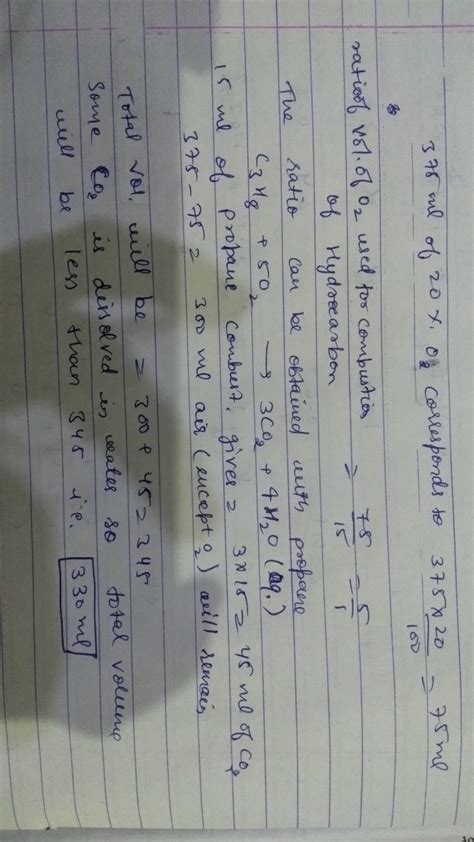 375 ml of 20 %. O2 corresponds to 375 x 20 / 100 = 75 ml
ratio of vol. of O2 used for combustion of Hydrocarbon = 75 / 15 = 5 / 1
The ratio can be obtained with propane
C3H8 + 5O2 → 3CO2 + 4H2O (aq.)
15 ml of propane combust. gives = 3 x 15 = 45 ml of CO2
375 - 75 = 300 ml air (except O2) will remain
Total vol. will be = 300 + 45 = 345
Some CO2 is dissolved in water so total volume
will be less than 345 i.e. 330 ml